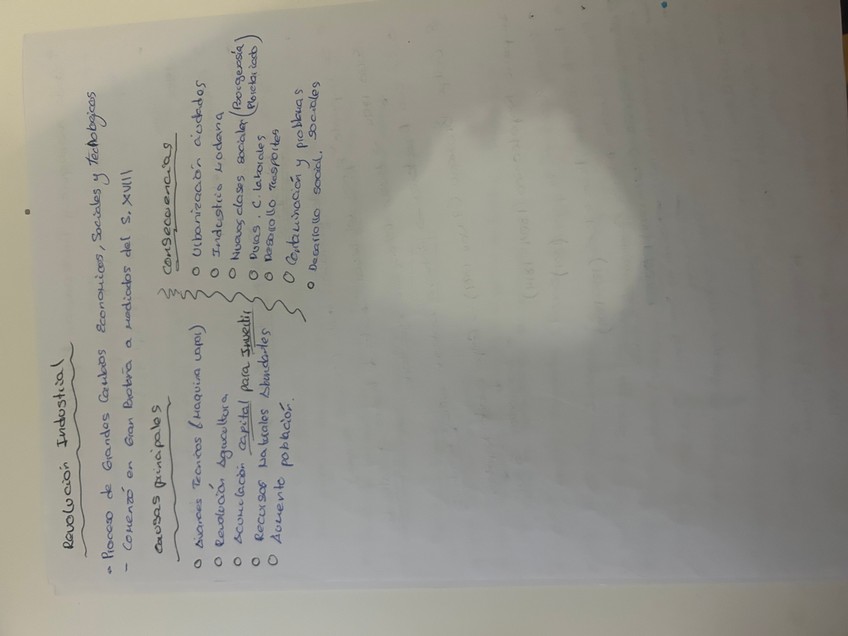 Revolución Industrial
- Proceso de Grandes Cambios Económicos, Sociales y Tecnologicos
- Comenzó en Gran Bretaña a mediados del S. XVIII
Causas principales
o Avances Tecnicos (Maquina vapor)
o Revolución Agricultura
o Acumulación capital para Invertir
o Recursos Naturales Abundantes
o Aumento población.
Consecuencias
o Urbanización ciudades
o Industria Moderna
o Nuevas clases sociales (Burgensia Ploretariado)
o Duras. C. laborales
o Desarollo Trasportes
o Contaminación y problemas sociales
o Desarollo social.